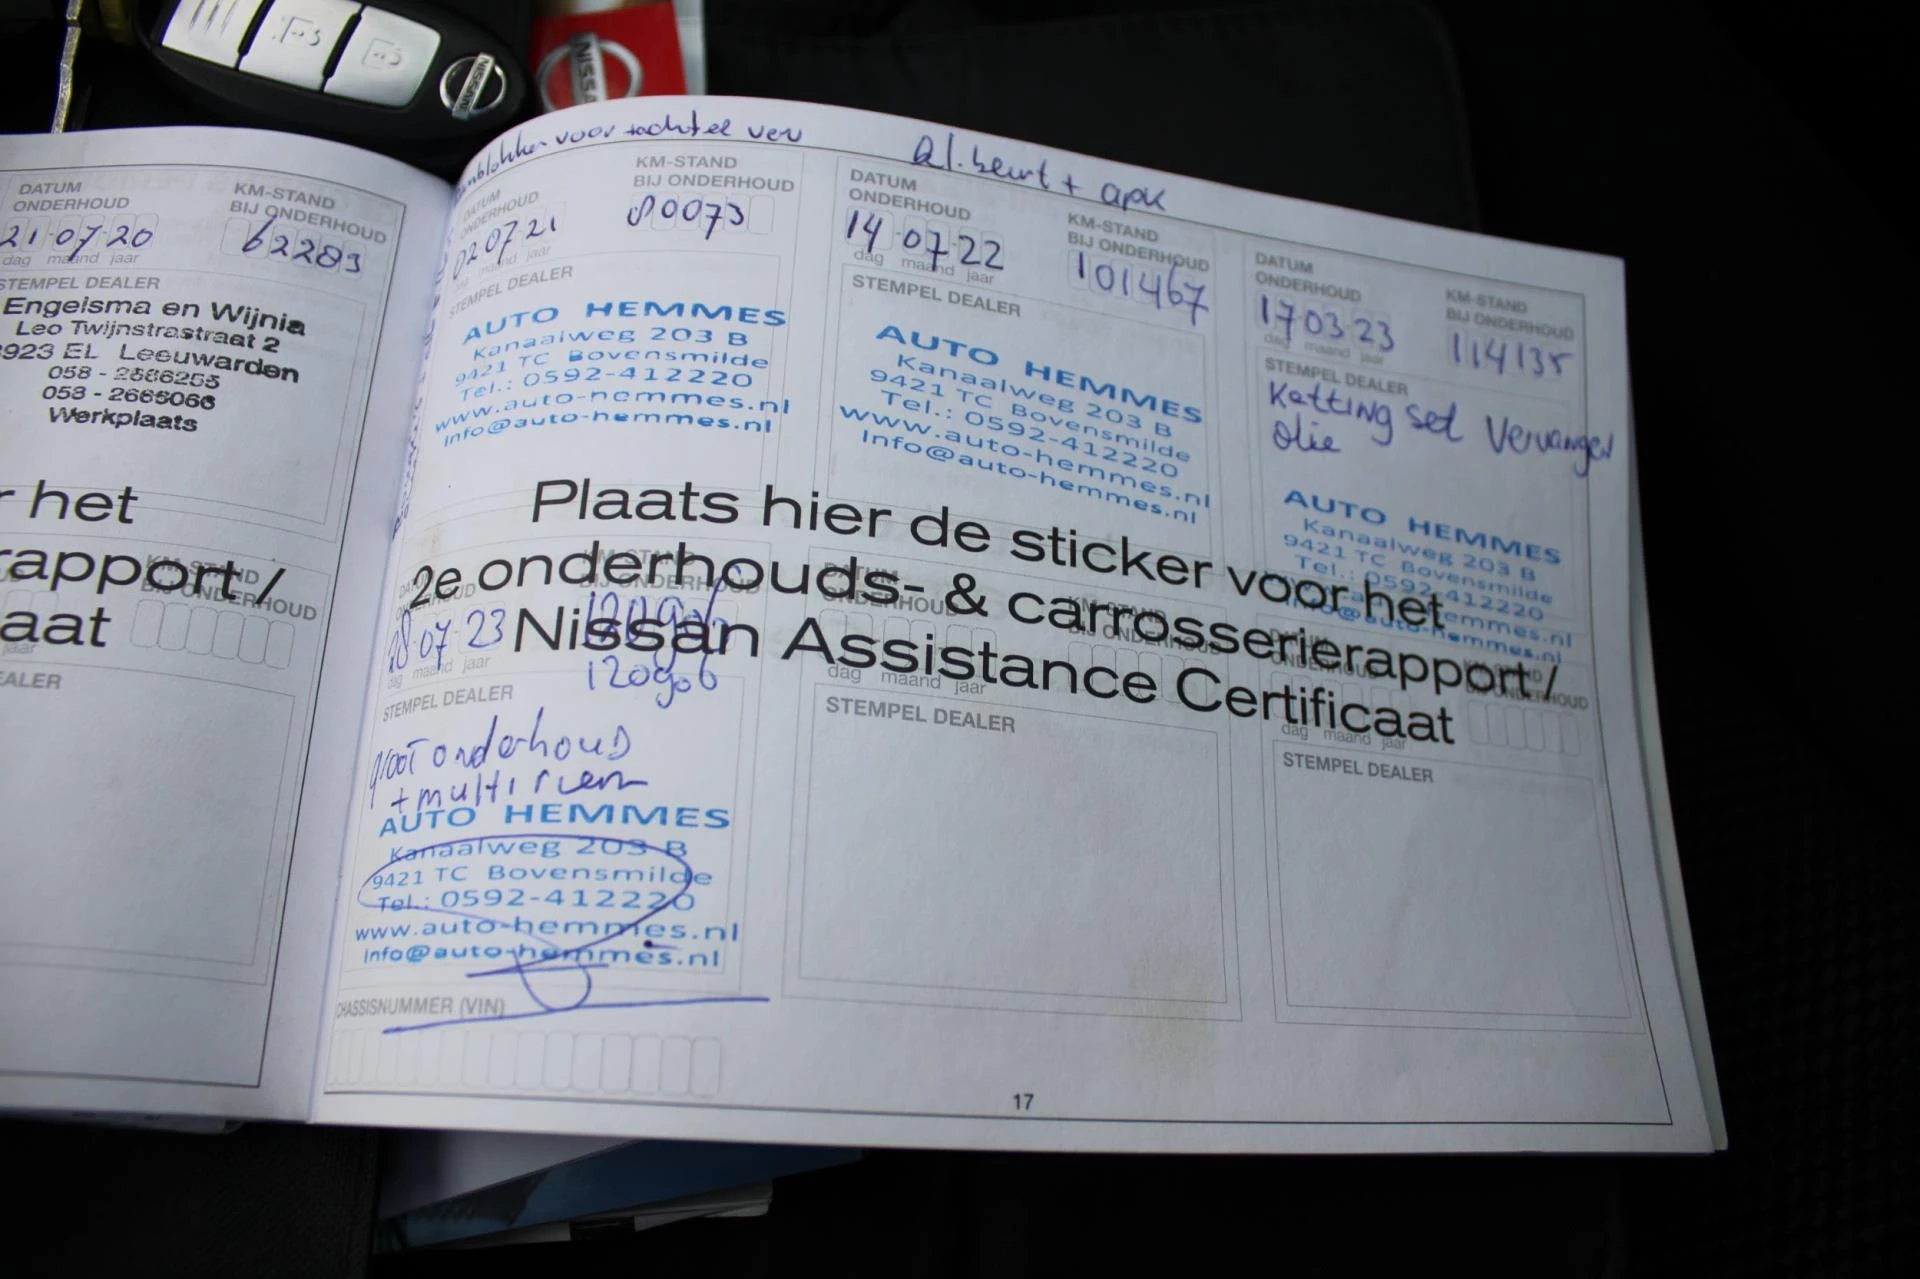 NISSAN
NISSA
DATUM
ONDERHOUD
KM-STAND
BIJ ONDERHOUD
21 07 20
62283
dag maand jaar
STEMPEL DEALER
Engelsma en Wijnia
Leo Twijnstrastraat 2
8923 EL Leeuwarden
058 - 2666255
058 - 2666066
Werkplaats
r het
rapport /
aat
KM-STAND
BIJ ONDERHOUD
jaar
EALER
voor + achter
DATUM
ONDERHOUD
KM-STAND
BIJ ONDERHOUD
02 07 21
80073
maand jaar
STEMPEL DEALER
AUTO HEMMES
Kanaalweg 203 B
9421 TC Bovensmilde
Tel.: 0592-412220
www.auto-hemmes.nl
Info@auto-hemmes.nl
beurt + apk
DATUM
ONDERHOUD
KM-STAND
BIJ ONDERHOUD
14 07 22
101467
dag maand jaar
STEMPEL DEALER
AUTO HEMMES
Kanaalweg 203 B
9421 TC Bovensmilde
Tel.: 0592-412220
www.auto-hemmes.nl
Info@auto-hemmes.nl
DATUM
ONDERHOUD
KM-STAND
BIJ ONDERHOUD
17 03 23
114135
dag maand jaar
STEMPEL DEALER
Ketting set vervangen
olie
AUTO HEMMES
Kanaalweg 203 B
9421 TC Bovensmilde
Tel.: 0592-412220
www.auto-hemmes.nl
Info@auto-hemmes.nl
Plaats hier de sticker voor het
2e onderhouds- & carrosserierapport /
Nissan Assistance Certificaat
DATUM
ONDERHOUD
KM-STAND
BIJ ONDERHOUD
28 07 23
120906
120906
dag maand jaar
STEMPEL DEALER
groot onderhoud
+ multiriem
AUTO HEMMES
Kanaalweg 203 B
9421 TC Bovensmilde
Tel.: 0592-412220
www.auto-hemmes.nl
Info@auto-hemmes.nl
DATUM
ONDERHOUD
KM-STAND
BIJ ONDERHOUD
dag maand jaar
STEMPEL DEALER
DATUM
ONDERHOUD
KM-STAND
BIJ ONDERHOUD
dag maand jaar
STEMPEL DEALER
CHASSISNUMMER (VIN)
17